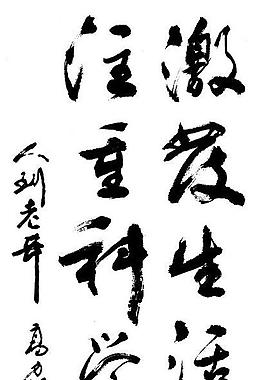 激發生活
注重科学
人到老年高